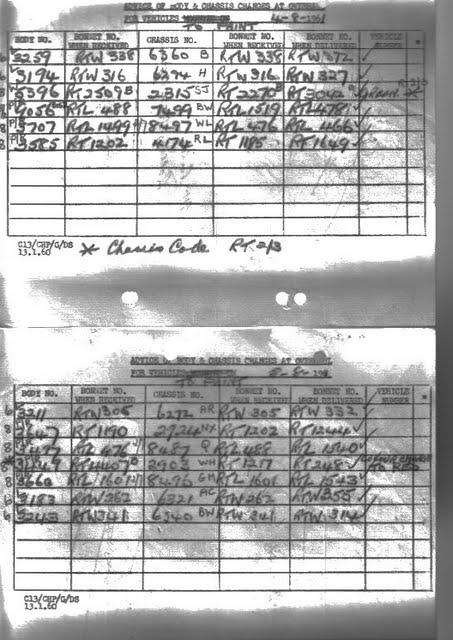 ADVICE OF BODY & CHASSIS CHANGES AT OVERHAUL
FOR VEHICLES 4-8-1961
TO PAINT
BODY NO. BONNET NO. WHEN RECEIVED CHASSIS NO. BONNET NO. WHEN RECEIVED BONNET NO. WHEN DELIVERED VEHICLE NUMBER *
3259 RTW 338 6360 B RTW 338 RTW 372 ✓
3194 RTW 316 6374 H RTW 316 RTW 327 ✓
5396 RT 2509 B 2315 SJ RT 2270 RT 3042
7056 RTL 488 7499 BW RTL 1519 RTL 478 ✓
5707 RTL 1499 8497 WL RTL 476 RTL 466 ✓
3585 RT 1202 4174 RL RT 1185 RT 1649 ✓
C13/CHP/G/DS
13.1.60
* Chassis Code RT 2/3
ADVICE OF BODY & CHASSIS CHANGES AT OVERHAUL
FOR VEHICLES 5-8-196
TO PAINT
BODY NO. BONNET NO. WHEN RECEIVED CHASSIS NO. BONNET NO. WHEN RECEIVED BONNET NO. WHEN DELIVERED VEHICLE NUMBER *
6 3211 RTW 305 6272 AR RTW 305 RTW 332 ✓
RT 1190 2924 NX RT 1202 RT 1244 ✓
RTL 476 8487 Q RTL 488 RTL 1540 ✓
RT 4407 2903 WH RT 1217 RT 248 ✓ TO RED
3660 RTL 1601 8496 GH RTL 1601 RTL 1543 ✓
6 3183 RTW 262 6221 AC RTW 262 RTW 355 ✓
6 3243 RTW 341 6340 BW RTW 341 RTW 314 ✓
C13/CHP/G/DS
13.1.60